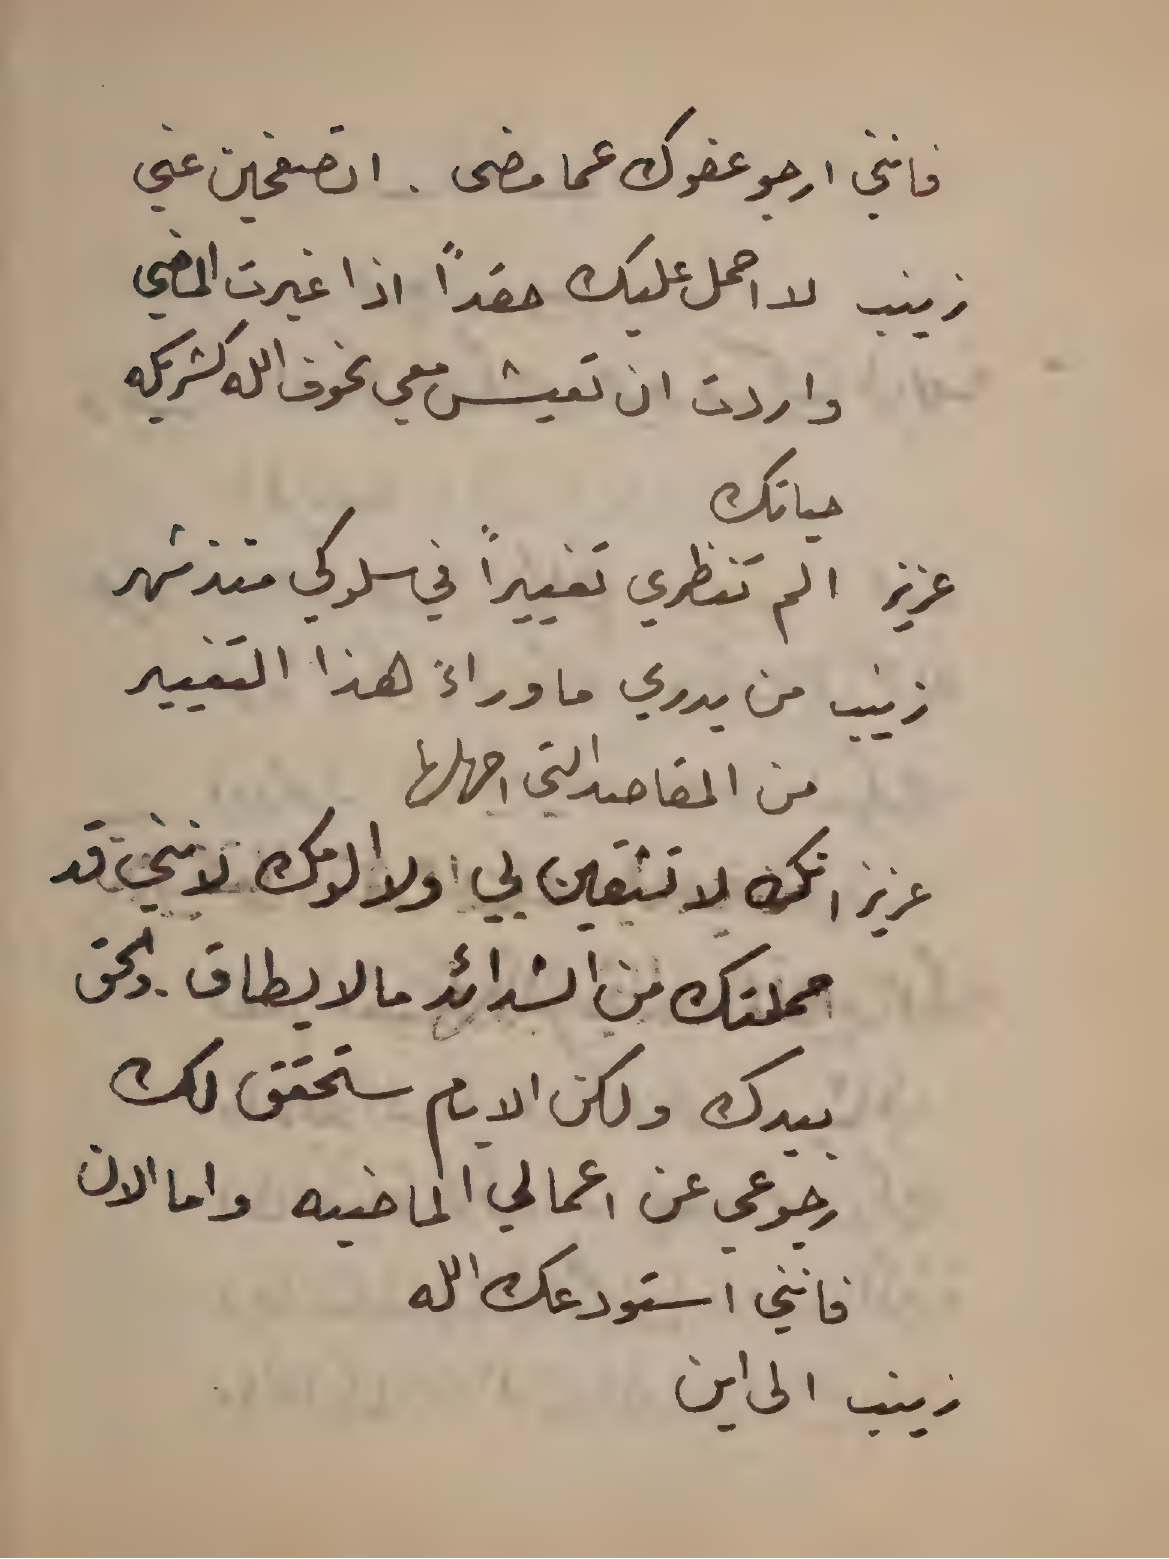 فانني ارجو عفوك عما مضى . اتصفحين عني
زينب لا احمل عليك حقداً اذا غيرت الماضي
واردت ان تعيش معي بخوف الله كشريكه
حياتك
عزيز الم تنظري تغييراً في سلوكي منذ شهر
زينب من يدري ما وراء هذا التغيير
من المقاصد التي اجهلها
عزيز انك لا تثقين بي ولا الومك لانني قد
حملتك من الشدائد ما لا يطاق . والحق
بيدك ولكن الايام ستحقق لك
رجوعي عن اعمالي الماضيه واما الان
فانني استودعك الله
زينب الى اين